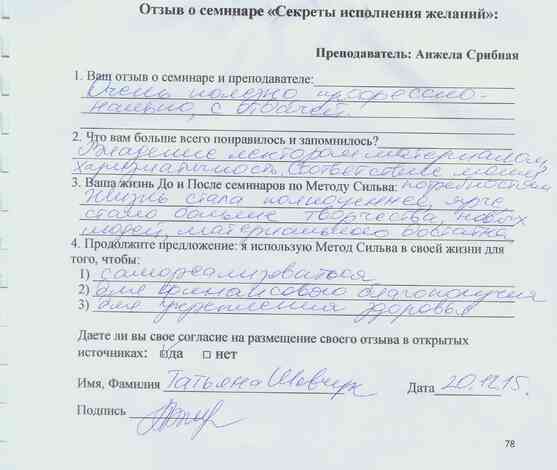 Отзыв о семинаре «Секреты исполнения желаний»:
Преподаватель: Анжела Срибная
1. Ваш отзыв о семинаре и преподавателе:
Очень полезно профессио-
нально, с отдачей.
2. Что вам больше всего понравилось и запомнилось?
Владение лектором материалом,
харизматичность, соответствие моим
3. Ваша жизнь До и После семинаров по Методу Сильва: потребностям
Жизнь стала полноценнее, ярче
стало больше творчества, новых
людей, материального достатка
4. Продолжите предложение: я использую Метод Сильва в своей жизни для
того, чтобы:
1) самореализоваться
2) для финансового благополучия
3) для укрепления здоровья
Даете ли вы свое согласие на размещение своего отзыва в открытых
источниках: да нет
Имя, Фамилия Татьяна Шевчук Дата 20.12.15.
Подпись
78